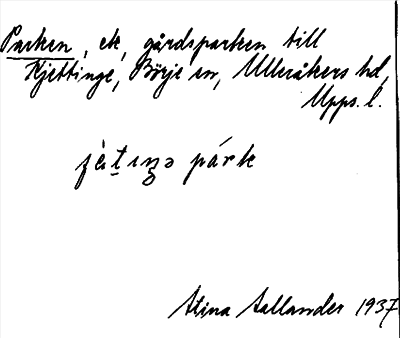 Parken, ek, gårdsparken till
Kjettinge, Börje sn, Ulleråkers hd,
Upps. l.
párk
Stina Sallander 1937